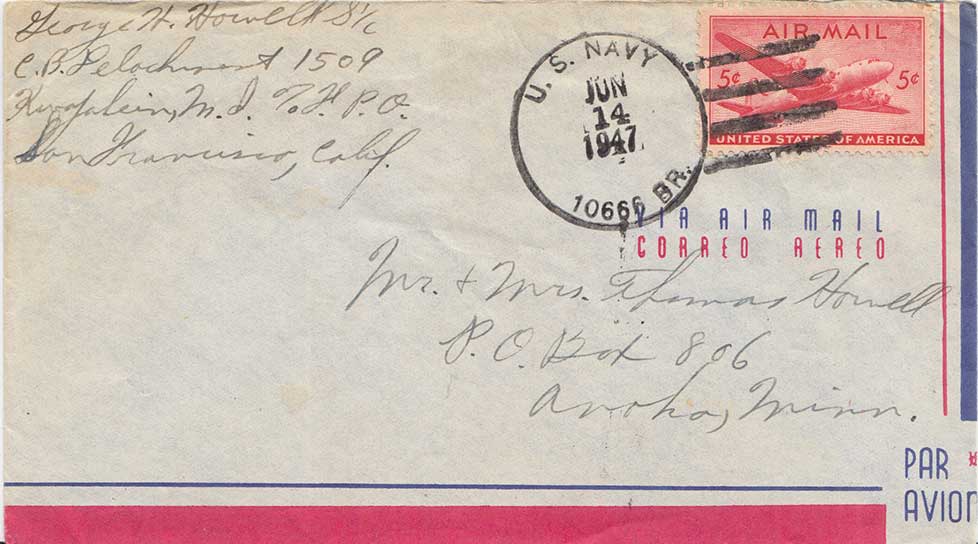 George H. Howell S 1/c
C.B. Detachment 1509
Kwajalein, M.I. % F.P.O.
San Francisco, Calif.
AIR MAIL
5¢ 5¢
UNITED STATES OF AMERICA
U. S. NAVY
JUN
14
1947
10666 BR.
VIA AIR MAIL
CORREO AEREO
Mr. + Mrs. Thomas Howell
P.O. Box 806
Anoka, Minn.
PAR
AVION